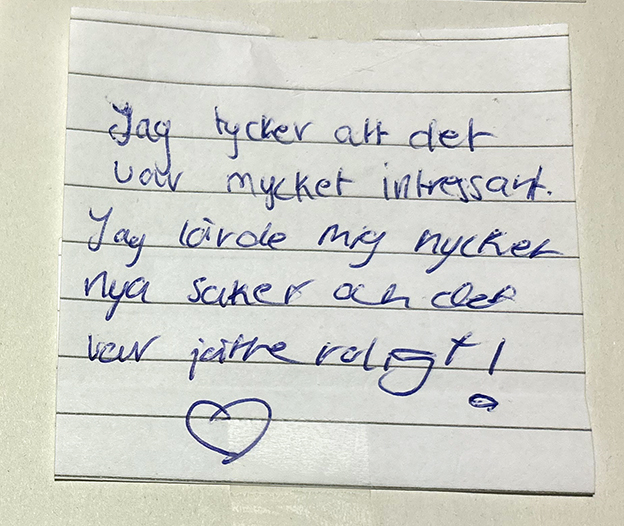 Jag tycker att det
var mycket intressant.
Jag lärde mig mycket
nya saker och det
var jätte roligt!